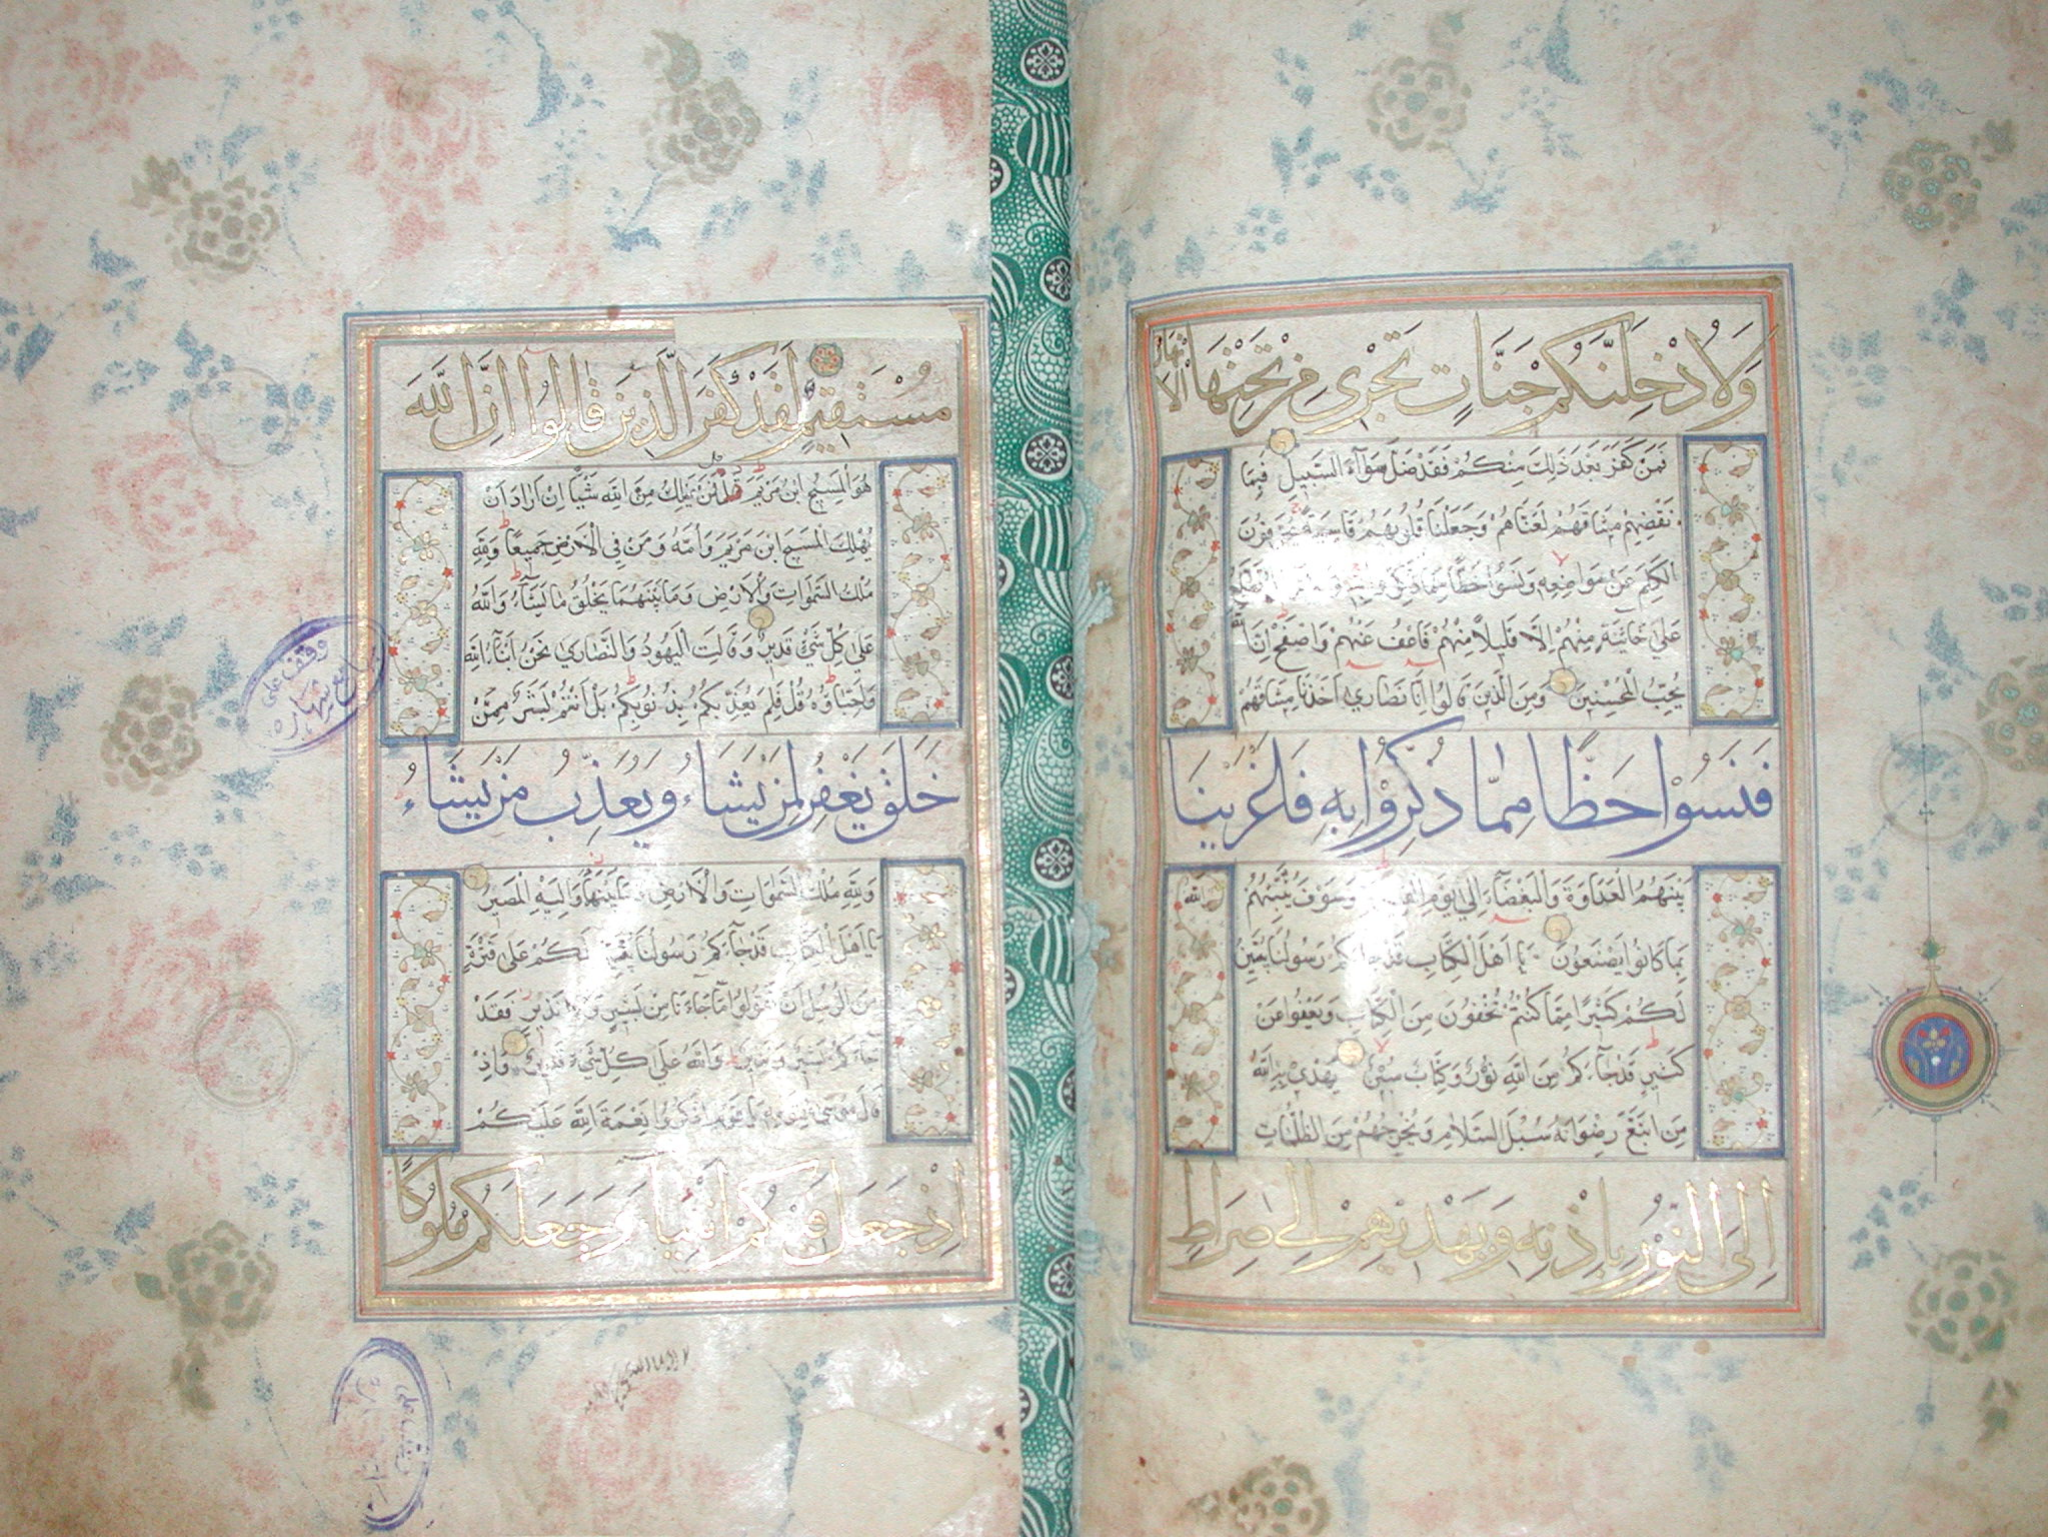 وَلَأُدْخِلَنَّكُمْ جَنَّاتٍ تَجْرِي مِنْ تَحْتِهَا الْأَنْهَارُ
فَمَنْ كَفَرَ بَعْدَ ذَلِكَ مِنْكُمْ فَقَدْ ضَلَّ سَوَآءَ السَّبِيلِ فَبِمَا
نَقْضِهِمْ مِيثَاقَهُمْ لَعَنَّاهُمْ وَجَعَلْنَا قُلُوبَهُمْ قَاسِيَةً يُحَرِّفُونَ
الْكَلِمَ عَنْ مَوَاضِعِهِ وَنَسُوا حَظًّا مِمَّا ذُكِّرُوا بِهِ وَلَا تَزَالُ تَطَّلِعُ
عَلَى خَائِنَةٍ مِنْهُمْ إِلَّا قَلِيلًا مِنْهُمْ فَاعْفُ عَنْهُمْ وَاصْفَحْ إِنَّ اللَّهَ
يُحِبُّ الْمُحْسِنِينَ وَمِنَ الَّذِينَ قَالُوا إِنَّا نَصَارَى أَخَذْنَا مِيثَاقَهُمْ
فَنَسُوا حَظًّا مِمَّا ذُكِّرُوا بِهِ فَأَغْرَيْنَا
بَيْنَهُمُ الْعَدَاوَةَ وَالْبَغْضَآءَ إِلَى يَوْمِ الْقِيَامَةِ وَسَوْفَ يُنَبِّئُهُمُ اللَّهُ
بِمَا كَانُوا يَصْنَعُونَ يَا أَهْلَ الْكِتَابِ قَدْ جَآءَكُمْ رَسُولُنَا يُبَيِّنُ
لَكُمْ كَثِيرًا مِمَّا كُنْتُمْ تُخْفُونَ مِنَ الْكِتَابِ وَيَعْفُوا عَنْ
كَثِيرٍ قَدْ جَآءَكُمْ مِنَ اللَّهِ نُورٌ وَكِتَابٌ مُبِينٌ يَهْدِي بِهِ اللَّهُ
مَنِ اتَّبَعَ رِضْوَانَهُ سُبُلَ السَّلَامِ وَيُخْرِجُهُمْ مِنَ الظُّلُمَاتِ
إِلَى النُّورِ بِإِذْنِهِ وَيَهْدِيهِمْ إِلَى صِرَاطٍ
مُسْتَقِيمٍ لَقَدْ كَفَرَ الَّذِينَ قَالُوا إِنَّ اللَّهَ
هُوَ الْمَسِيحُ ابْنُ مَرْيَمَ قُلْ فَمَنْ يَمْلِكُ مِنَ اللَّهِ شَيْئًا إِنْ أَرَادَ أَنْ
يُهْلِكَ الْمَسِيحَ ابْنَ مَرْيَمَ وَأُمَّهُ وَمَنْ فِي الْأَرْضِ جَمِيعًا وَلِلَّهِ
مُلْكُ السَّمَوَاتِ وَالْأَرْضِ وَمَا بَيْنَهُمَا يَخْلُقُ مَا يَشَآءُ وَاللَّهُ
عَلَى كُلِّ شَيْءٍ قَدِيرٌ وَقَالَتِ الْيَهُودُ وَالنَّصَارَى نَحْنُ أَبْنَآءُ اللَّهِ
وَأَحِبَّاؤُهُ قُلْ فَلِمَ يُعَذِّبُكُمْ بِذُنُوبِكُمْ بَلْ أَنْتُمْ بَشَرٌ مِمَّنْ
خَلَقَ يَغْفِرُ لِمَنْ يَشَاءُ وَيُعَذِّبُ مَنْ يَشَاءُ
وَلِلَّهِ مُلْكُ السَّمَوَاتِ وَالْأَرْضِ وَمَا بَيْنَهُمَا وَإِلَيْهِ الْمَصِيرُ
يَا أَهْلَ الْكِتَابِ قَدْ جَآءَكُمْ رَسُولُنَا يُبَيِّنُ لَكُمْ عَلَى فَتْرَةٍ
مِنَ الرُّسُلِ أَنْ تَقُولُوا مَا جَاءَنَا مِنْ بَشِيرٍ وَلَا نَذِيرٍ فَقَدْ
جَآءَكُمْ بَشِيرٌ وَنَذِيرٌ وَاللَّهُ عَلَى كُلِّ شَيْءٍ قَدِيرٌ وَإِذْ
قَالَ مُوسَى لِقَوْمِهِ يَا قَوْمِ اذْكُرُوا نِعْمَةَ اللَّهِ عَلَيْكُمْ
إِذْ جَعَلَ فِيكُمْ أَنْبِيَآءَ وَجَعَلَكُمْ مُلُوكًا
وقف على